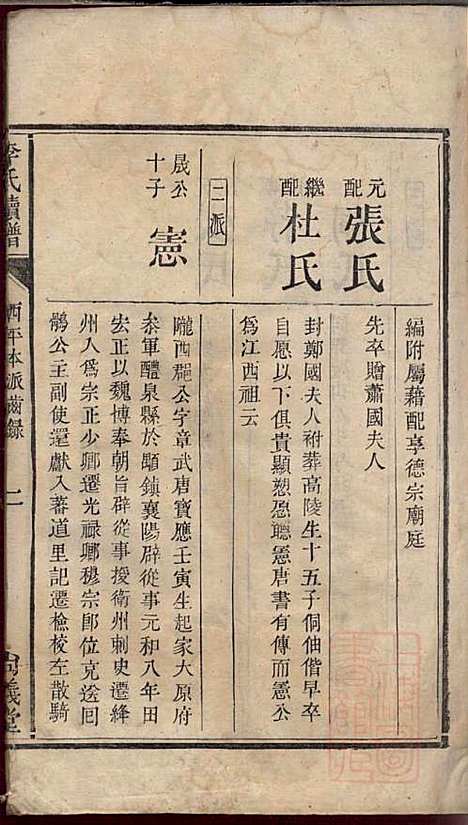 編附屬藉配享德宗廟庭
元配張氏
先卒贈蕭國夫人
繼配杜氏
封鄭國夫人祔葬高陵生十五子侗伷偕早卒
自愿以下俱貴顯愬愻聽憲唐書有傳而憲公
為江西祖云
二派
晟公十子憲
隴西郡公字章武唐寶應壬寅生起家大原府
叅軍醴泉縣於䪼鎮襄陽辟從事元和八年田
宏正以魏博奉朝旨辟從事授衛州刺史遷絳
州人為宗正少卿遷光祿卿穆宗卽位克送囘
鶻公主副使還獻入蕃道里記遷檢校左散騎
李氏續譜
西平本派齒錄
二
義堂